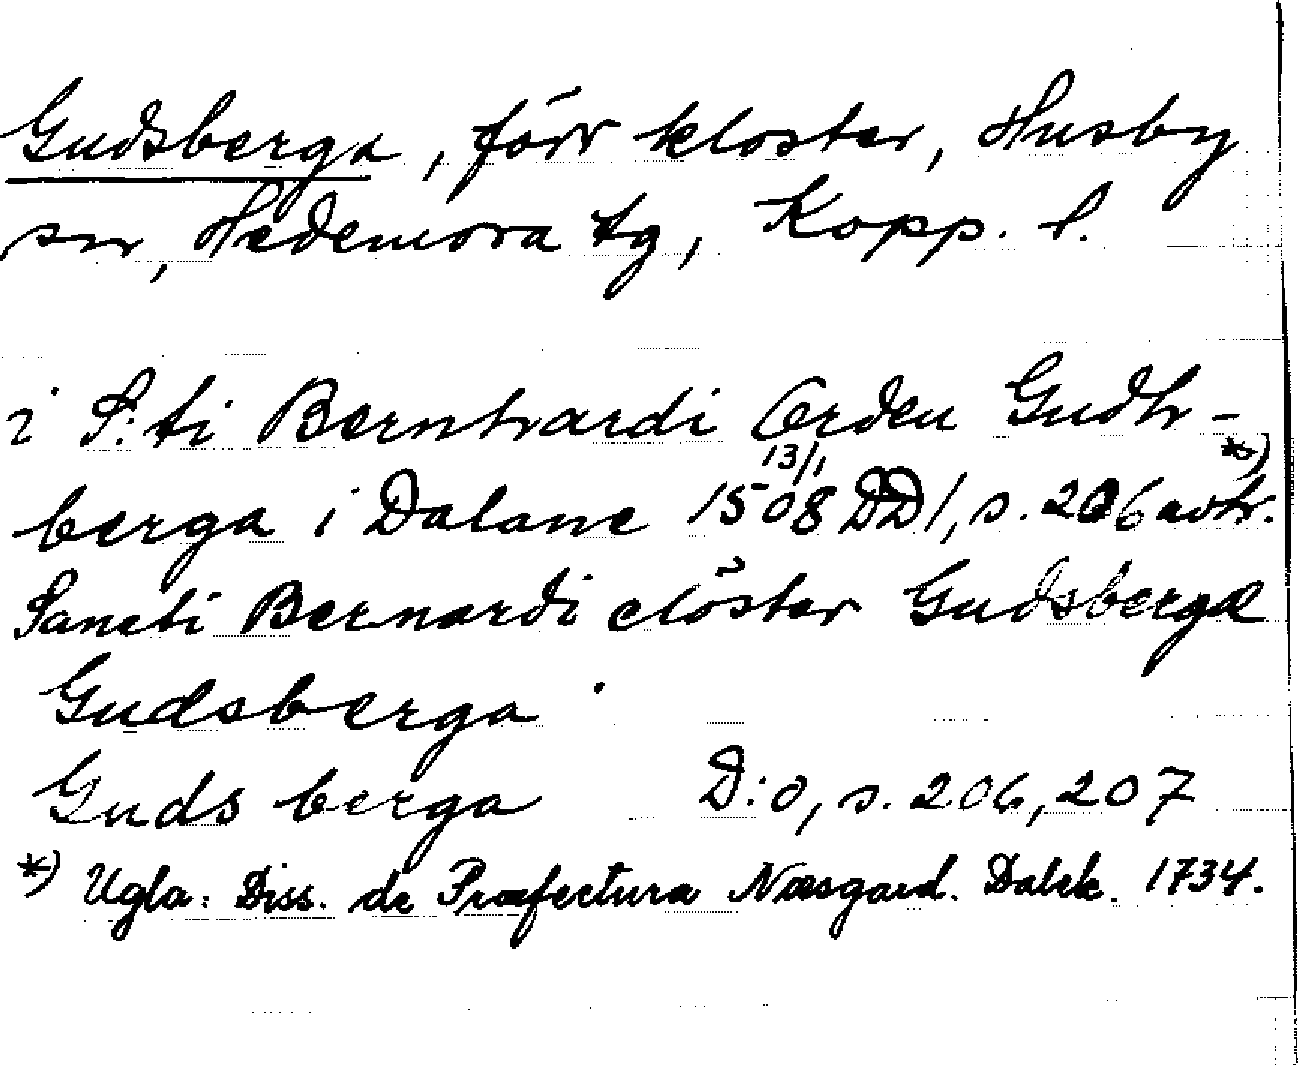 Gudsberga, förr kloster, Husby
sn, Hedemora tg, Kopp. l.
i S:ti Bernhardi Orden Gudh-
berga i Dalane 13/1 1508 DD 1, s. 206 avtr. *)
Sancti Bernardi clöster Gudsberga
Gudsberga
Guds berga D:o, s. 206, 207
*) Ugla: Diss. de Præfectura Næsgard. Dalek. 1734.